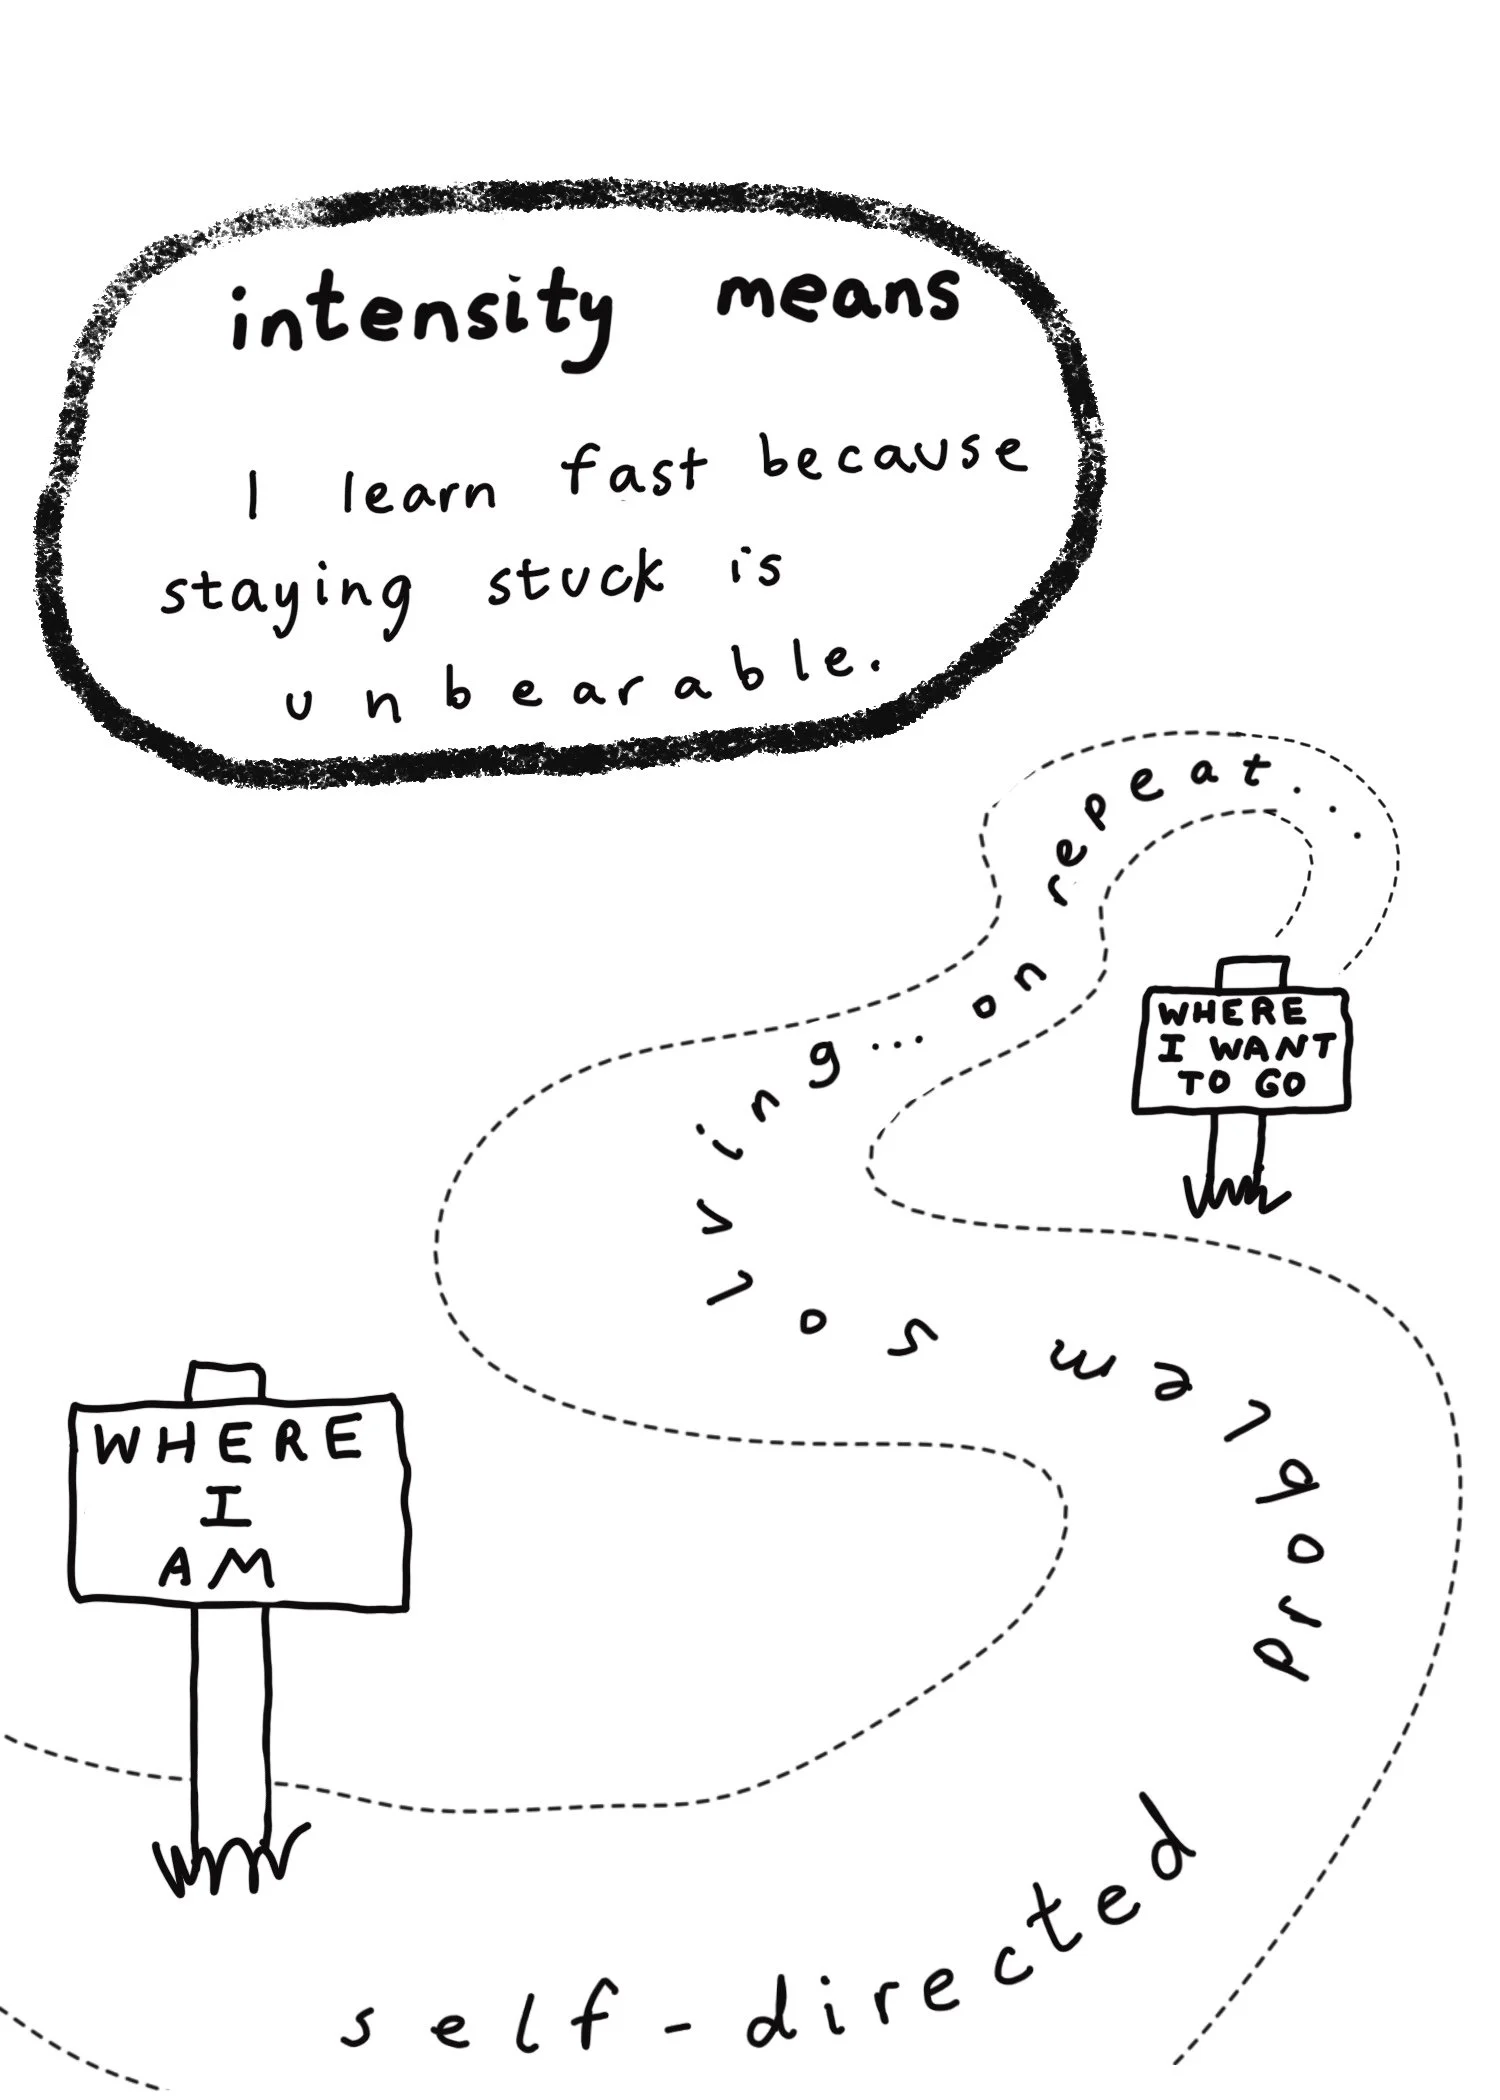 intensity means
I learn fast because
staying stuck is
unbearable.
WHERE
I WANT
TO GO
WHERE
I
AM
self-directed problem solving... on repeat...